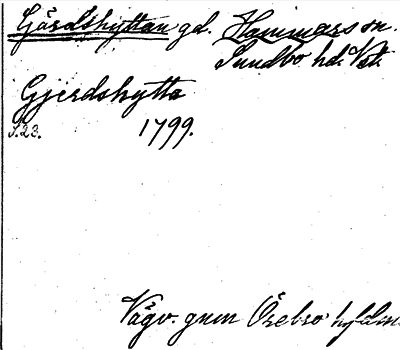 Gårdshyttan gd. Hammars sn.
Sundbo hd. Vst.
Gjerdshytta
S.23. 1799.
Vägv. gnm Örebro h